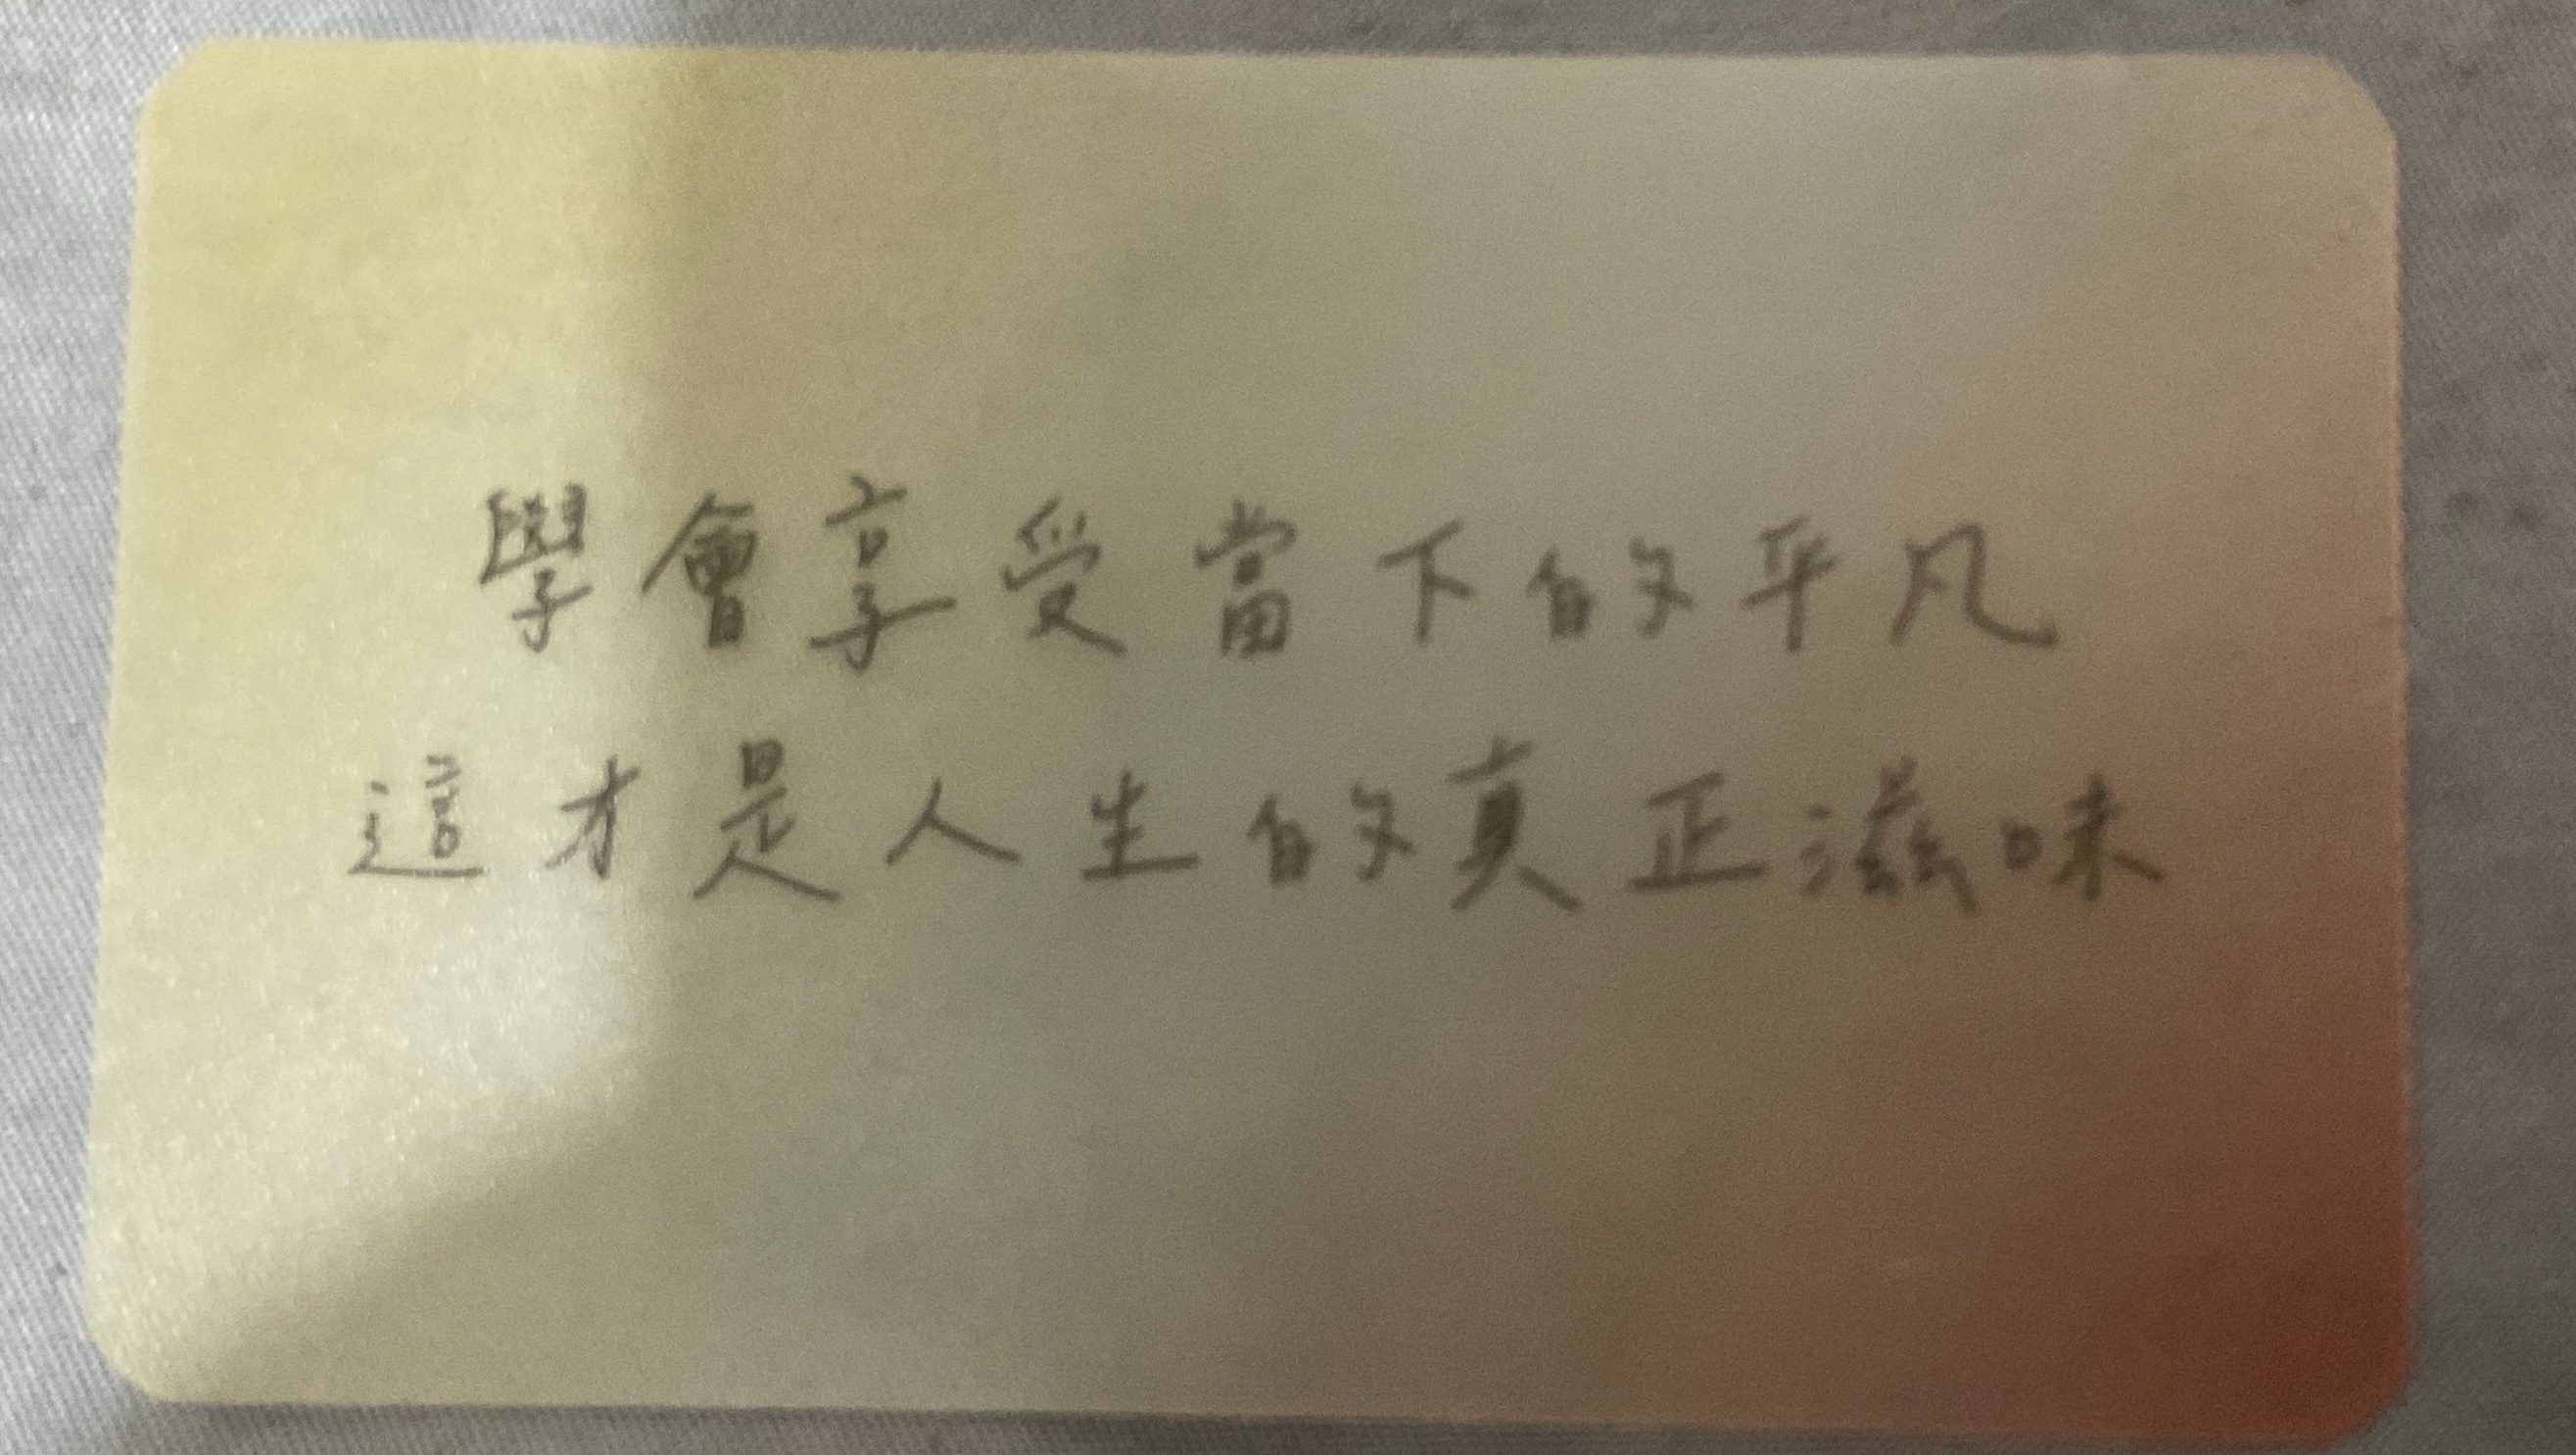 學會享受當下的平凡
這才是人生的真正滋味